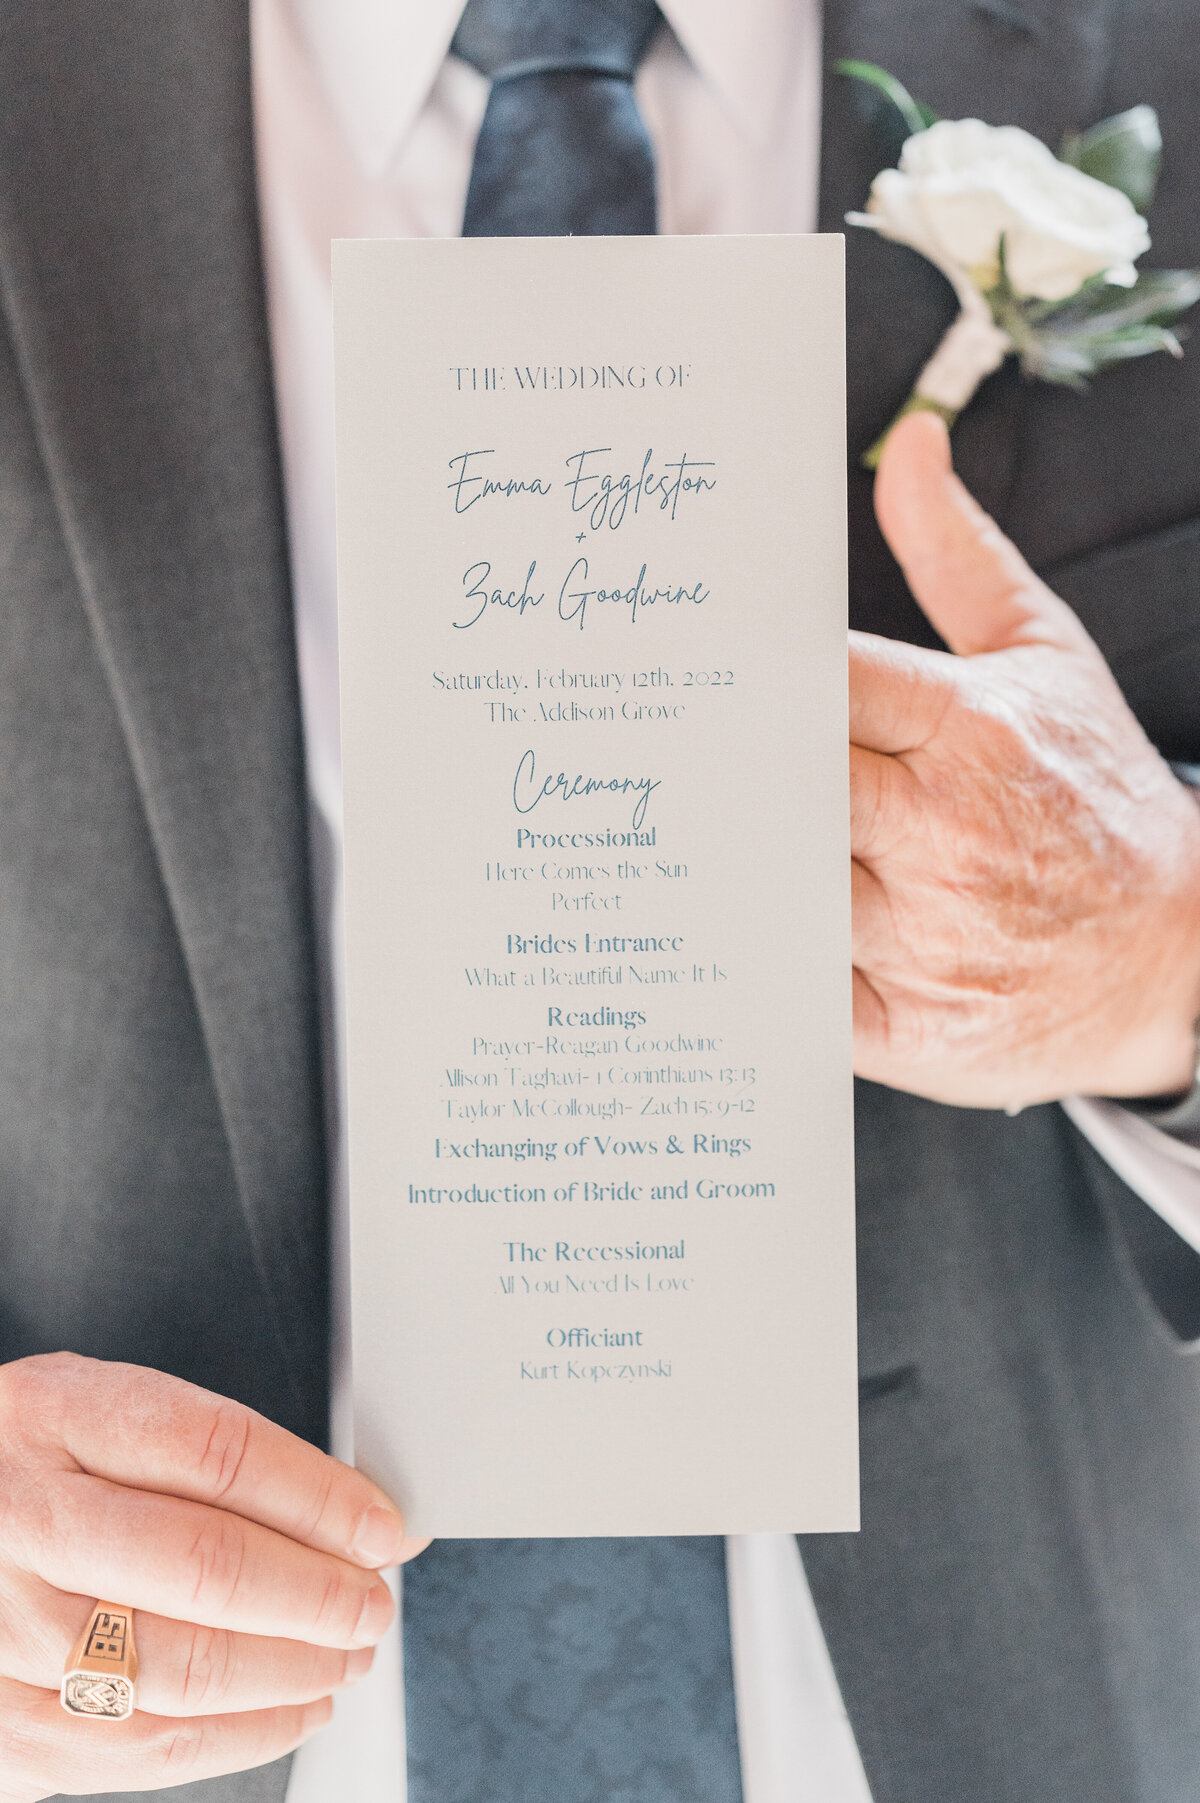 THE WEDDING OF
Emma Eggleston
+
Zach Goodwine
Saturday, February 12th, 2022
The Addison Grove
Ceremony
Processional
Here Comes the Sun
Perfect
Brides Entrance
What a Beautiful Name It Is
Readings
Prayer-Reagan Goodwine
Allison Taghavi- 1 Corinthians 13:13
Taylor McCollough- Zach 15: 9-12
Exchanging of Vows & Rings
Introduction of Bride and Groom
The Recessional
All You Need Is Love
Officiant
Kurt Kopczynski
85